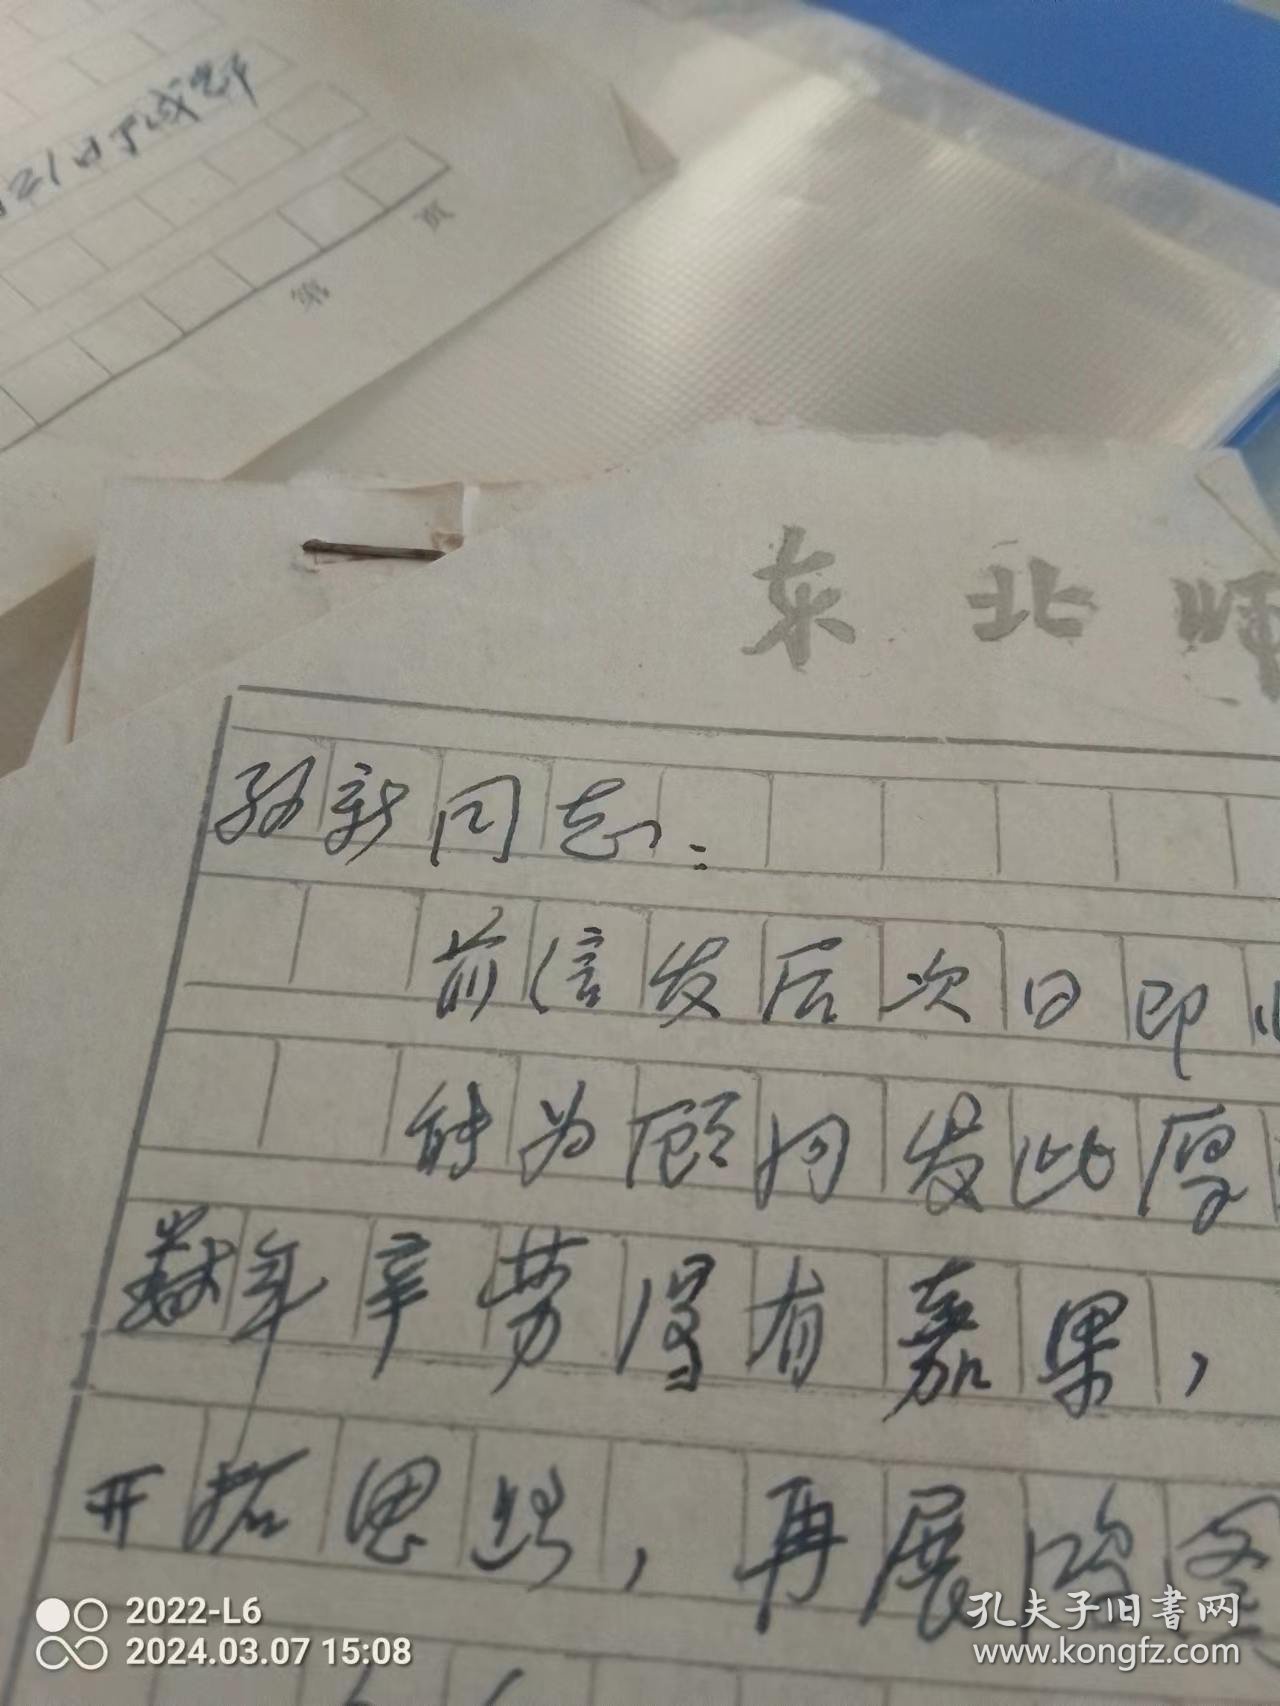 21日于成都
第 页
东北师
孙新同志：
前信发后次日即收
能为顾问发此厚
数年辛劳得有嘉果，
开拓思路，再展鸿图
2022-L6
2024.03.07 15:08
孔夫子旧书网
www.kongfz.com